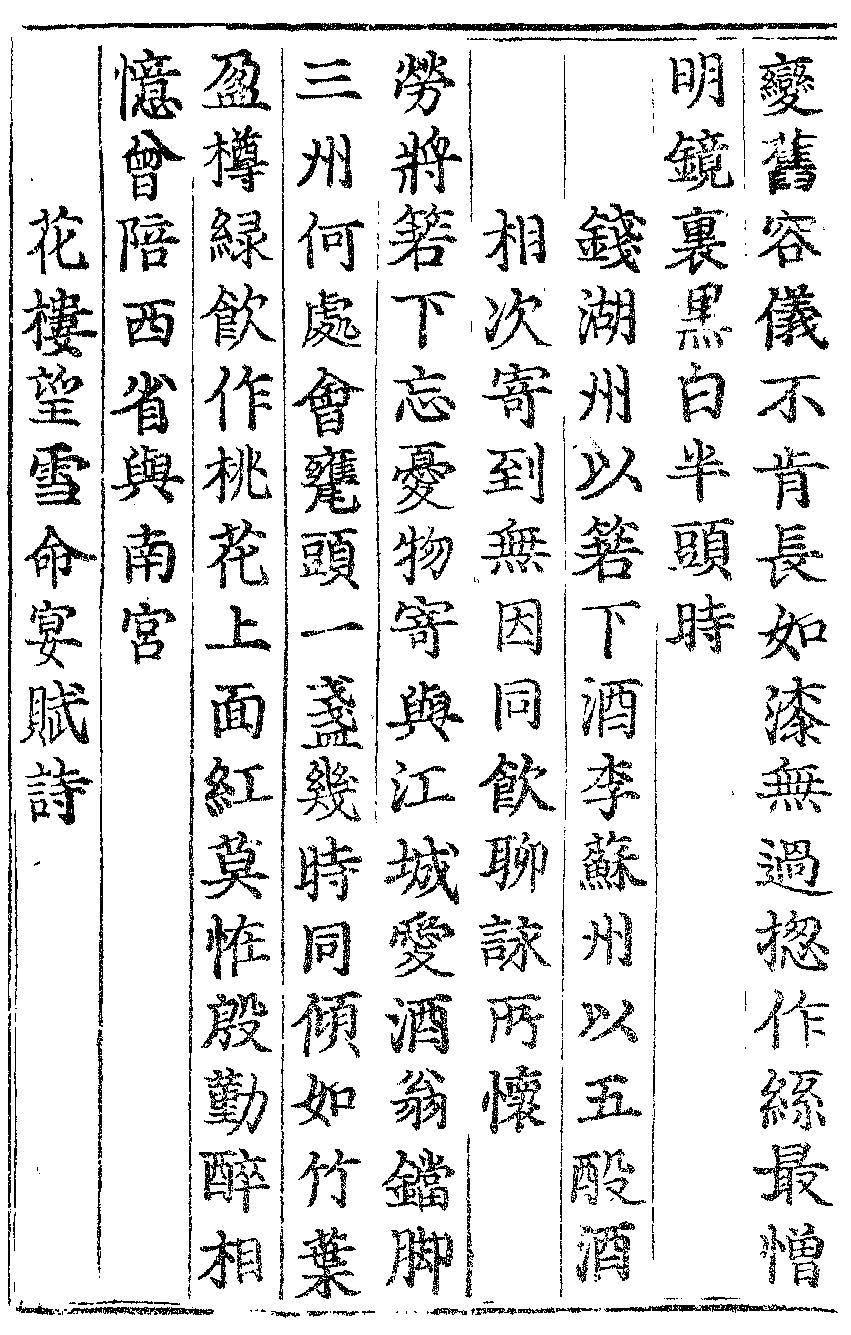 變舊容儀不肯長如漆無過揔作絲最憎
明鏡裏黑白半頭時
錢湖州以箬下酒李蘇州以五酘酒
相次寄到無因同飲聊詠所懷
勞將箬下忘憂物寄與江城愛酒翁鐺脚
三州何處會甕頭一盞幾時同傾如竹葉
盈樽緑飲作桃花上面紅莫恠殷勤醉相
憶曾陪西省與南宮
花樓望雪命宴賦詩